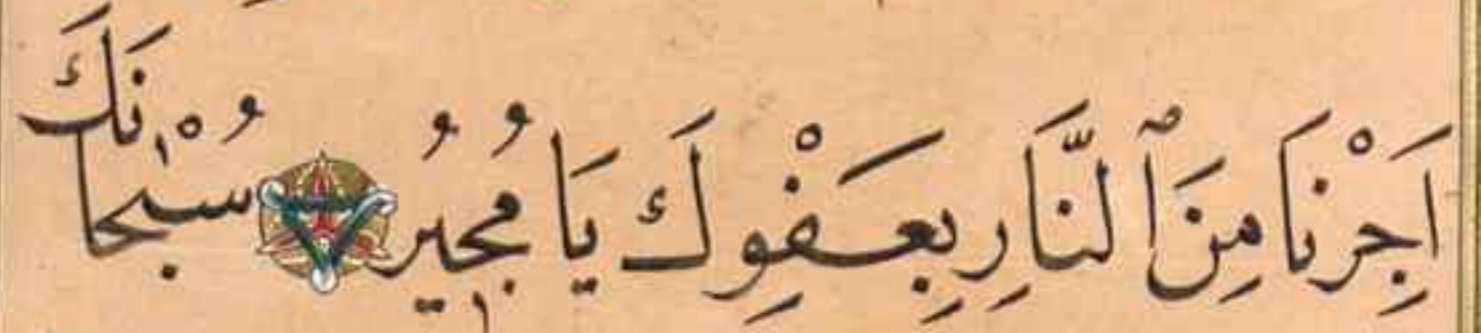 اَجِرْنَا مِنَ ٱلنَّارِ بِعَفْوِكَ يَا مُجِيرُ سُبْحَانَكَ